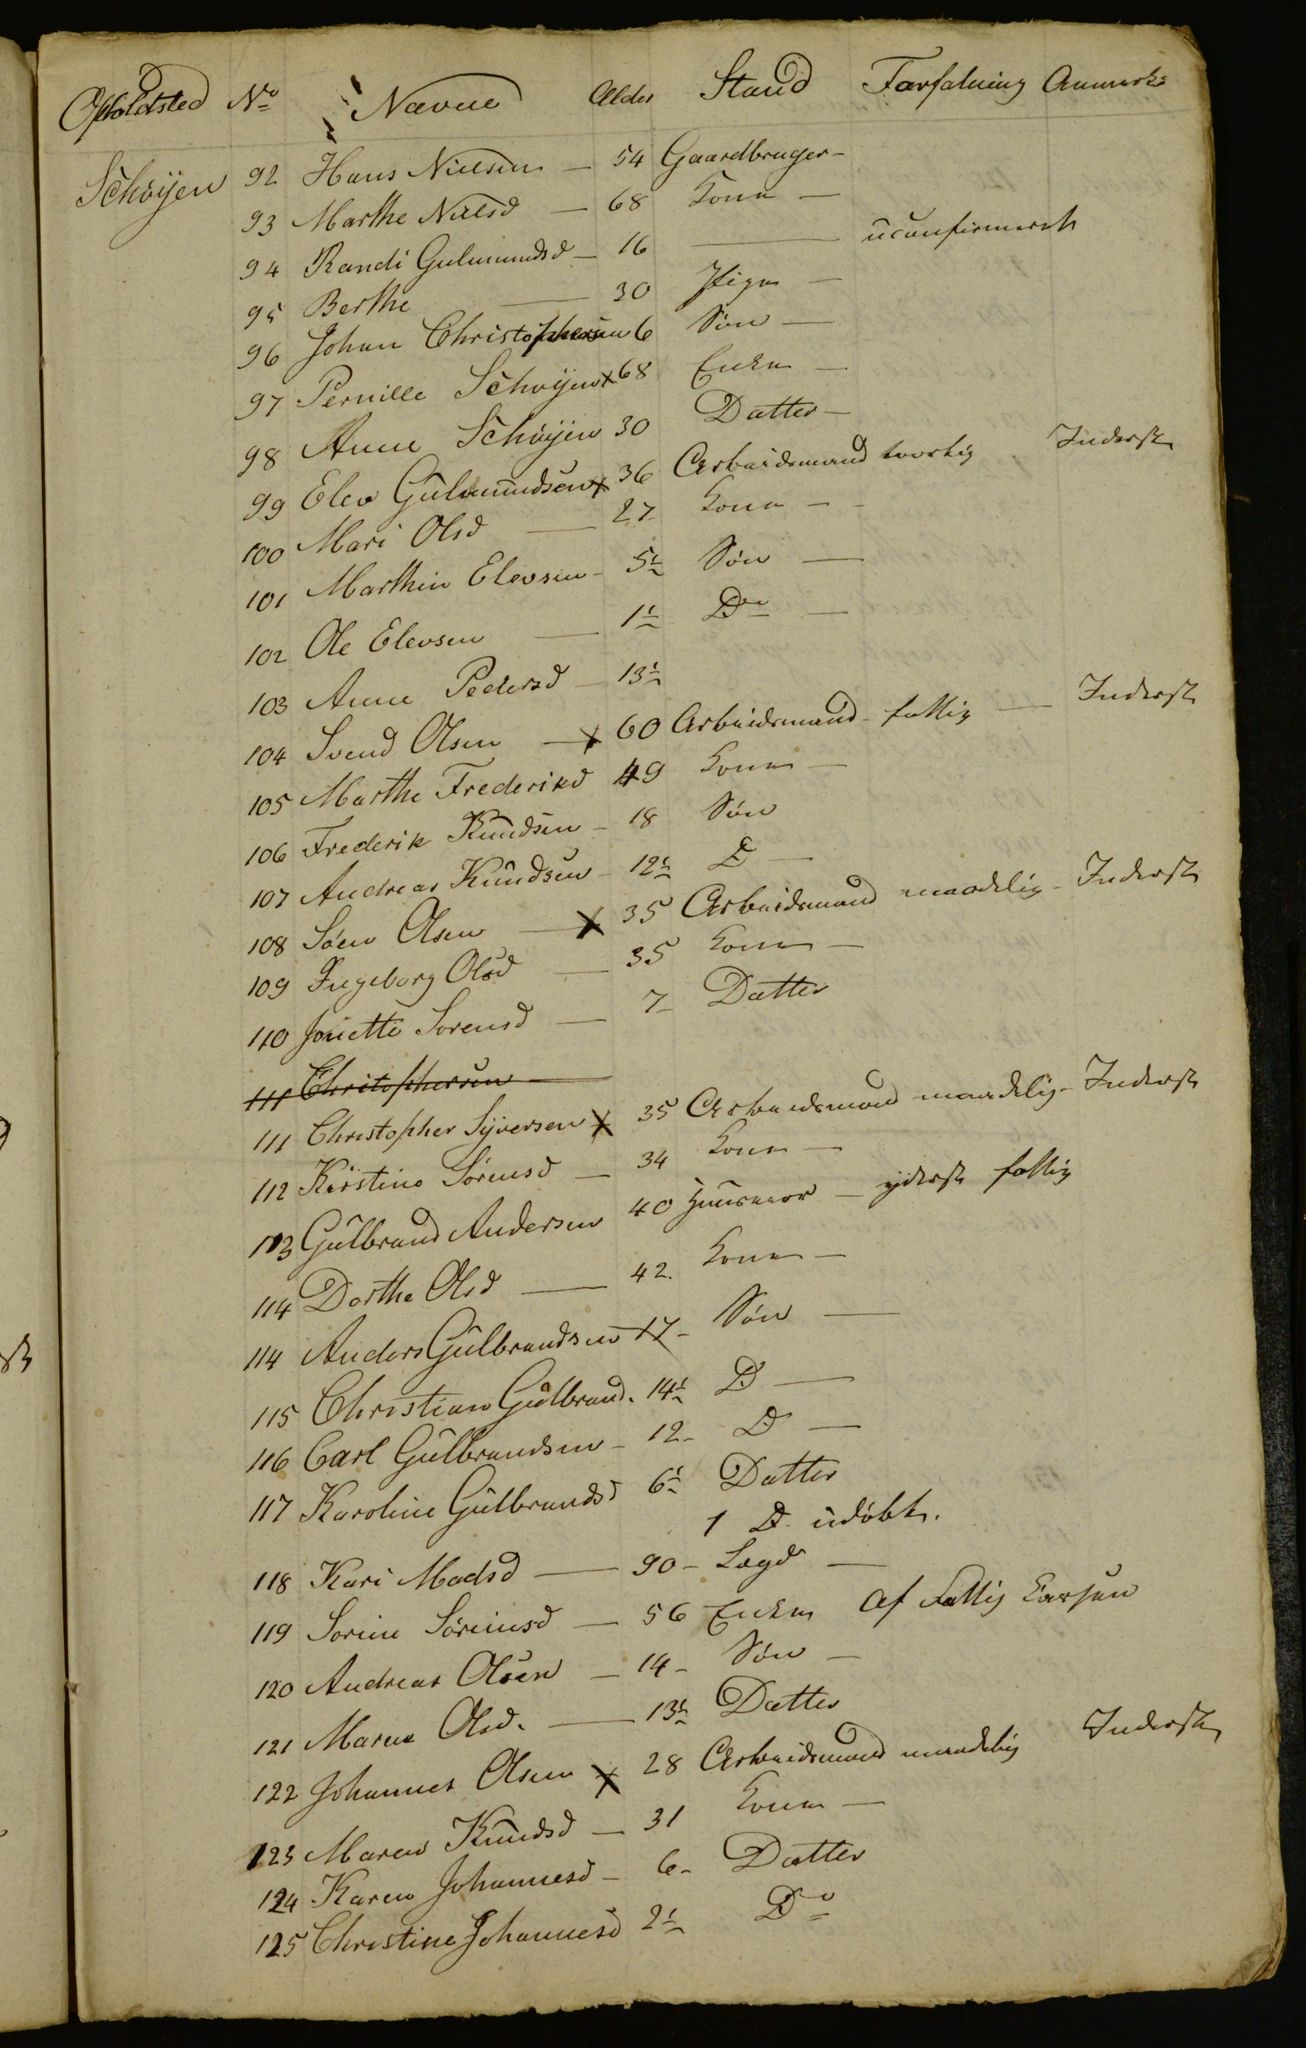 Opholdsted No Navne Alder Stand Forfatning Anmærk:
Schøyen 92 Hans Nielsen — 54 Gaardbruger —
93 Marthe Nielsd — 68 Kone —
94 Randi Gulmundsd — 16 — uconfirmert
95 Berthe — 30 Pige —
96 Johan Christophersen 6 Søn —
97 Pernille Schøyen x 68 Enke —
98 Anne Schøyen 30 Datter —
99 Elev Gulmundsen x 36 Arbeidsmand Inderst
100 Mari Olsd — 27 Kone —
101 Marthin Elevsen — 5 Søn —
102 Ole Elevsen — 1 Do —
103 Anne Pedersd — 13
104 Svend Olsen — x 60 Arbeidsmand — fattig — Inderst
105 Marthe Frederiksd 49 Kone —
106 Frederik Knudsen — 18 Søn
107 Andreas Knudsen — 12 D —
108 Søen Olsen — x 35 Arbeidsmand maadelig — Inderst
109 Ingeborg Olsd — 35 Kone —
110 Jonette Sorensd — 7 — Datter
111 Chritophersen —
111 Christopher Syversen x 35 Arbeidsmand maadelig — Inderst
112 Kirstine Sørensd — 34 Kone —
113 Gulbrand Andersen 40 Huusmand — yderst fattig
114 Dorthe Olsd — 42. Kone —
114 Anders Gulbrandsen 17 — Søn —
115 Christian Gulbrand. 14 D —
116 Carl Gulbrandsen — 12 — D —
117 Karoline Gulbrandsd 6 Datter
1 D udøbt.
118 Kari Madsd — 90 — Lægd —
119 Sorine Sørensd — 56 Enke Af Fattig Kassen
120 Andreas Olsen — 14 — Søn —
121 Maren Olsd. — 13 Datter
122 Johannes Olsen x 28 Arbeidsmand maadelig Inderst
123 Maren Knudsd — 31 Kone —
124 Karen Johannesd — 6 — Datter
125 Christine Johannesd 2 Do